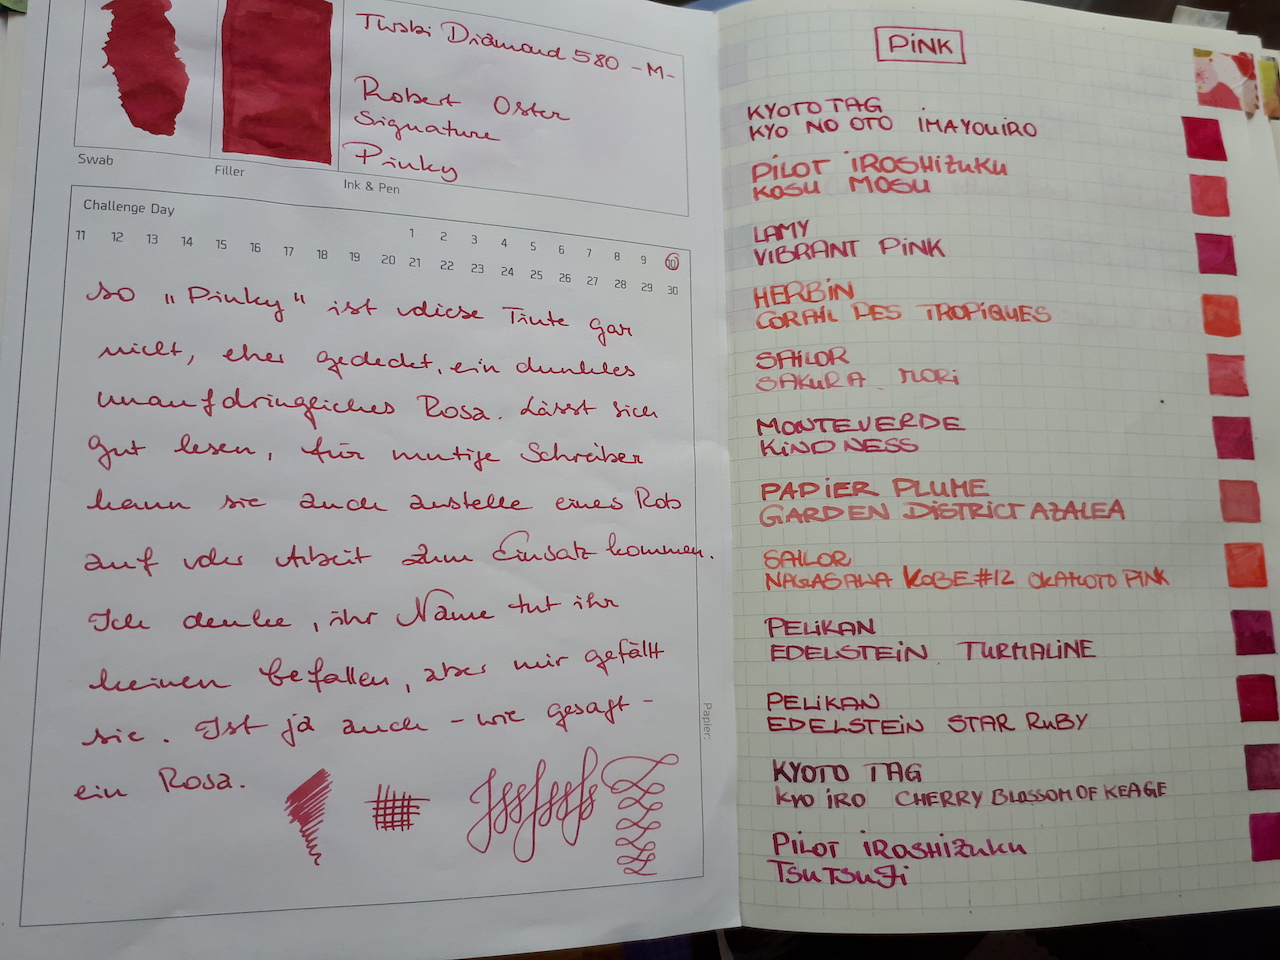 Twsbi Diamond 580 -M-
Robert Oster
Signature
Pinky
Swab
Filler
Ink & Pen
Challenge Day
1 2 3 4 5 6 7 8 9 10
11 12 13 14 15 16 17 18 19 20 21 22 23 24 25 26 27 28 29 30
so „Pinky" ist diese Tinte gar
nicht, eher gedeckt, ein dunkles
unaufdringliches Rosa. Lässt sich
gut lesen, für mutige Schreiber
kann sie auch anstelle eines Rots
auf der Arbeit zum Einsatz kommen.
Ich denke, ihr Name tut ihr
keinen Gefallen, aber mir gefällt
sie. Ist ja auch - wie gesagt -
ein Rosa.
Papier:
PINK
KYOTO TAG
KYO NO OTO IMAYOUIRO
PILOT IROSHIZUKU
KOSU MOSU
LAMY
VIBRANT PINK
HERBIN
CORAIL DES TROPIQUES
SAILOR
SAKURA MORI
MONTEVERDE
KINDNESS
PAPIER PLUME
GARDEN DISTRICT AZALEA
SAILOR
NAGASAWA KOBE #12 OKAMOTO PINK
PELIKAN
EDELSTEIN TURMALINE
PELIKAN
EDELSTEIN STAR RUBY
KYOTO TAG
KYO IRO CHERRY BLOSSOM OF KEAGE
PILOT IROSHIZUKU
TSUTSUJI